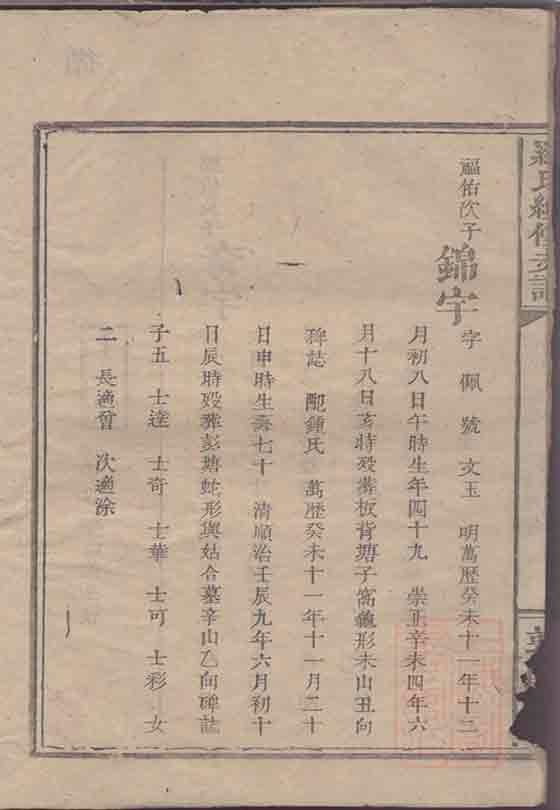 羅氏經修支譜
福佑次子
錦字
字 佩 號 文玉 明萬歷癸未十一年十二
月初八日午時生年四十九 崇正辛未四年六
月十八日亥時歿葬板背塘子窩龜形未山丑向
碑誌 配鍾氏 萬歷癸未十一年十一月二十
日申時生壽七十 清順治壬辰九年六月初十
日辰時歿葬彭塘虵形與姑合墓辛山乙向碑誌
子五 士逵 士奇 士華 士可 士彩 女
二 長適曾 次適涂